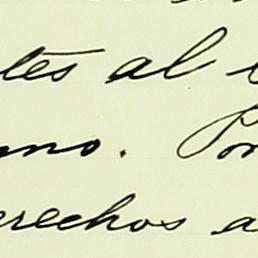 tes al
mo. Por
erechos a